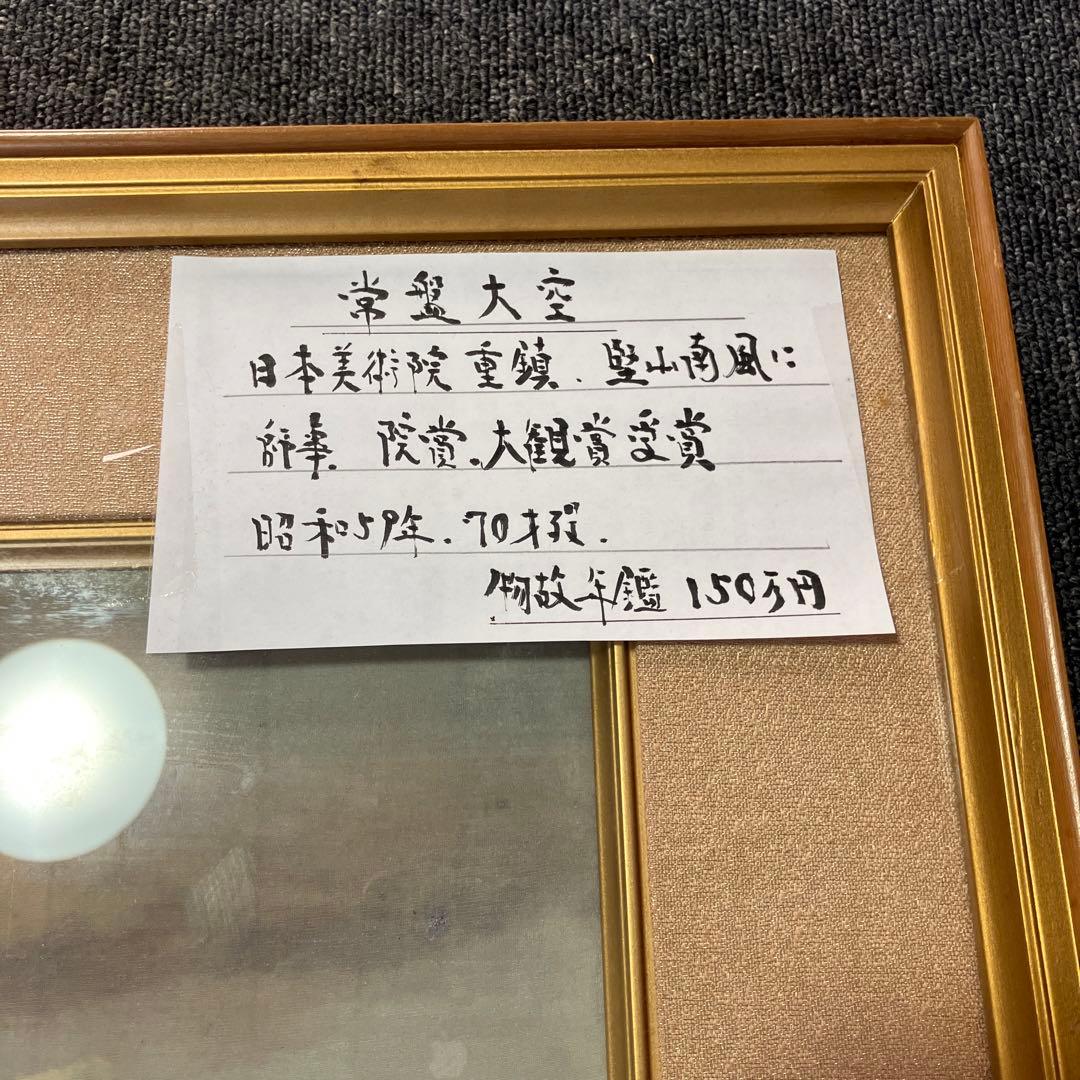 常盤大空
日本美術院重鎮、堅山南風に
師事、院賞、大観賞受賞
昭和59年、70才歿、
物故年鑑 150万円